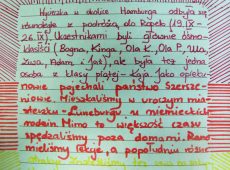 Wycieczka w okolice Hamburga odbyła się
z podróżą do Rugby (19.IX –
26.IX). Uczestnikami byli głównie ósmo-
klasiści (Bogna, Kinga, Ola K, Ola P, Ula,
Adam i Jaś), ale była też jedna
osoba z klasy piątej – Kaja. Jako opieku-
nowie pojechali państwo
Mieszkaliśmy w uroczym mia-
steczku – Lüneburgu u niemieckich
rodzin. Mimo to większość czasu
spędzaliśmy poza domami. Rano
mieliśmy lekcje, a popołudniu różne